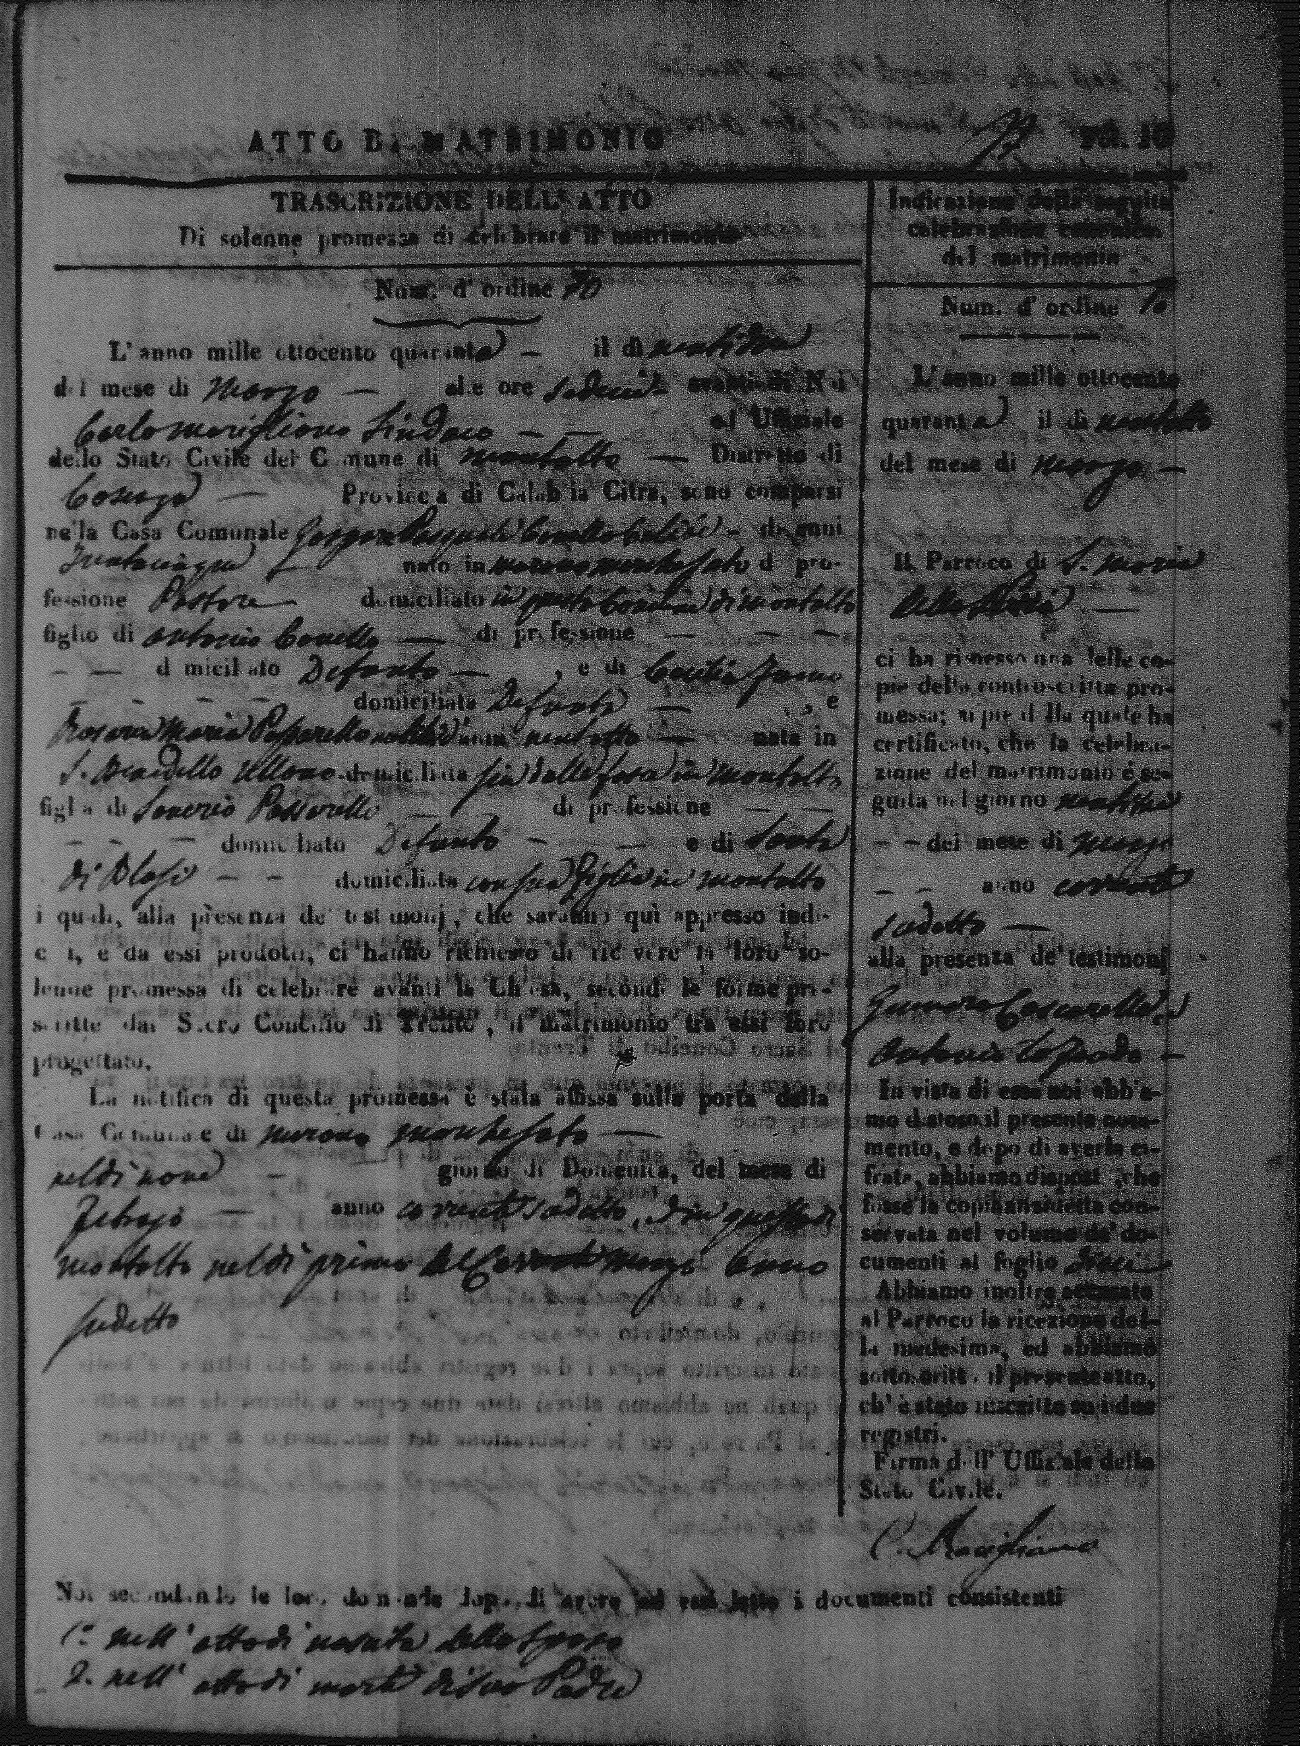 ATTO DI MATRIMONIO
Fol. 10
TRASCRIZIONE DELL' ATTO
Di solenne promessa di celebrare il matrimonio
Num. d' ordine 10
L' anno mille ottocento quaranta il dì ventidue
del mese di Marzo alle ore sedici avanti di Noi
Carlo Marigliano Sindaco ed Uffiziale
dello Stato Civile del Comune di Montalto Distretto di
Cosenza Provincia di Calabria Citra, sono comparsi
nella Casa Comunale Gaspare Pasquale di anni
trentacinque nato in di pro-
fessione Pastore domiciliato in questo Comune di Montalto
figlio di Antonio di professione
domiciliato Defunto , e di Cecilia
domiciliata Defunta , e
Rosa Maria Passarello nubile d'anni ventotto nata in
S. domiciliata in Montalto
figlia di Saverio Passarello di professione
domiciliato Defunto e di
di Blasi domiciliata con sua figlia in Montalto
i quali, alla presenza de' testimonj, che saranno quì appresso indi-
cati, e da essi prodotti, ci hanno richiesto di ricevere la loro so-
lenne promessa di celebrare avanti la Chiesa, secondo le forme pre-
scritte dal Sacro Concilio di Trento, il matrimonio tra essi loro
progettato.
La notifica di questa promessa è stata affissa sulla porta della
Casa Comunale di Marano Marchesato
nel dì nove giorno di Domenica, del mese di
Febrajo anno corrente sudetto, ed in questa di
Montalto nel dì primo del Corrente Marzo Anno
sudetto
Noi secondando le loro domande dopo di avere ad essi letto i documenti consistenti
1.° nell' atto di nascita dello sposo
2. nell' atto di morte di suo Padre
Indicazione della seguita
celebrazione canonica
del matrimonio
Num. d' ordine 10
L' anno mille ottocento
quaranta il dì ventotto
del mese di Marzo
Il Parroco di S. Maria
della
ci ha rimesso una delle co-
pie della controscritta pro-
messa; a piè della quale ha
certificato, che la celebra-
zione del matrimonio è se-
guita nel giorno
del mese di Marzo
anno corrente
sudetto
alla presenza de' testimonj
Gennaro Cascarella, e
Antonio
In vista di essa noi abbia-
mo disteso il presente nota-
mento, e dopo di averla ci-
frata, abbiamo disposto, che
fosse la copia anzidetta con-
servata nel volume de' do-
cumenti al foglio dieci
Abbiamo inoltre accusato
al Parroco la ricezione del-
la medesima, ed abbiamo
sottoscritto il presente atto,
ch' è stato inscritto su i due
registri.
Firma dell' Uffiziale dello
Stato Civile.
C. Marigliano